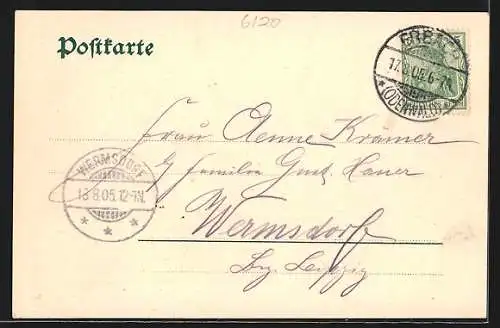 6120
Postkarte
ERBACH
17.8.05.6-7N.
* (ODENWALD) *
Frau Aenne Krämer
p/ Familie Gust. Hauer
WERMSDORF
18.8.05.12-1N.
* * *
Wermsdorf
Bez. Leipzig